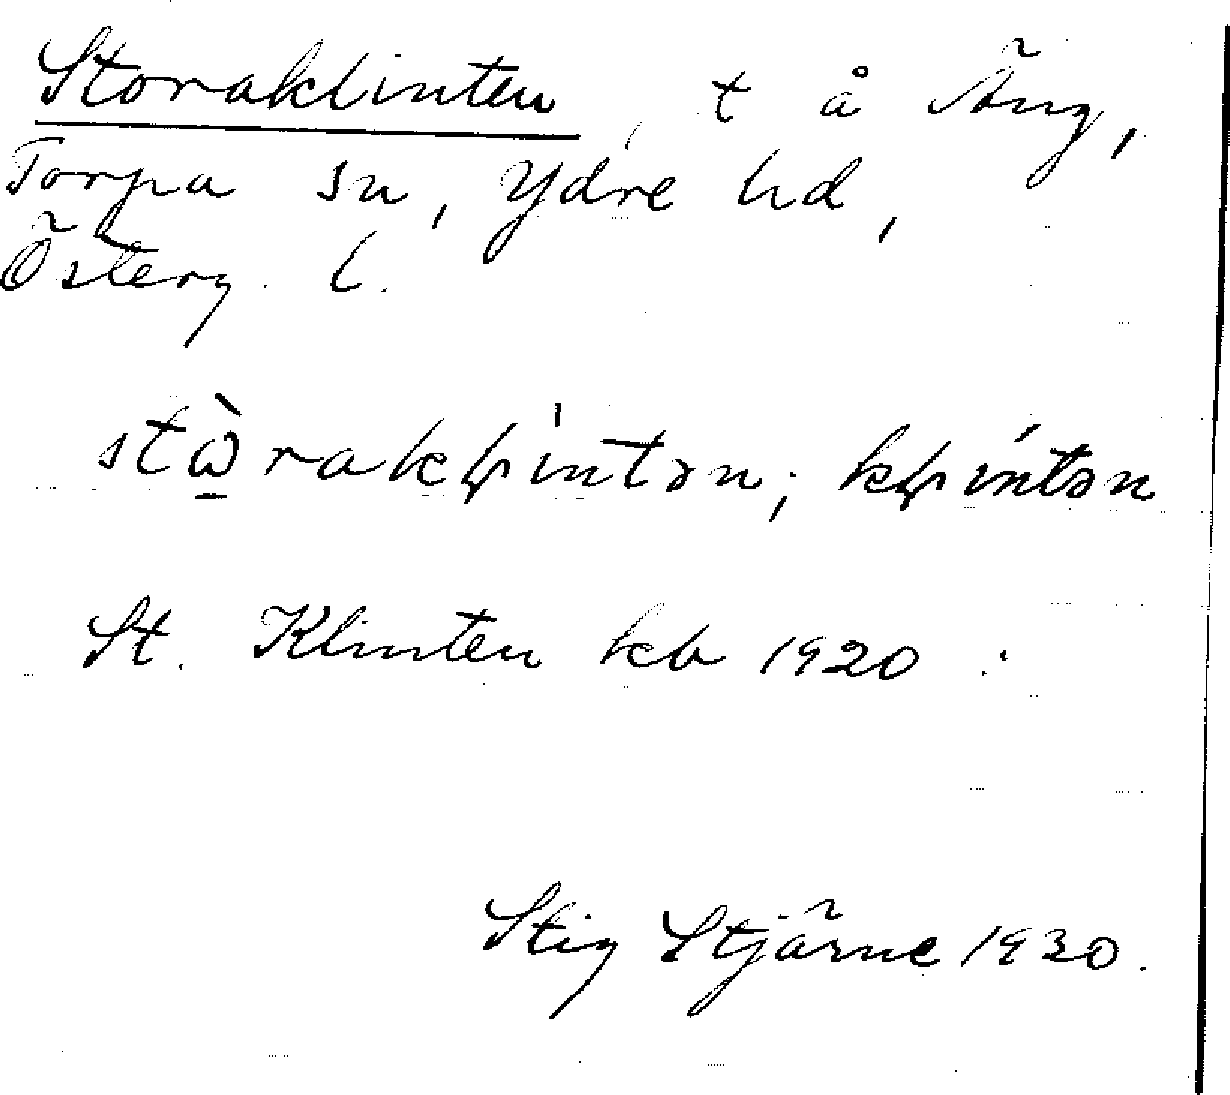 Storaklinten, t å Äng,
Torpa sn, Ydre hd,
Österg. l.
stὼ̱rakḷıntən; kḷíntən
St. Klinten kb 1920.
Stig Stjärne 1930.